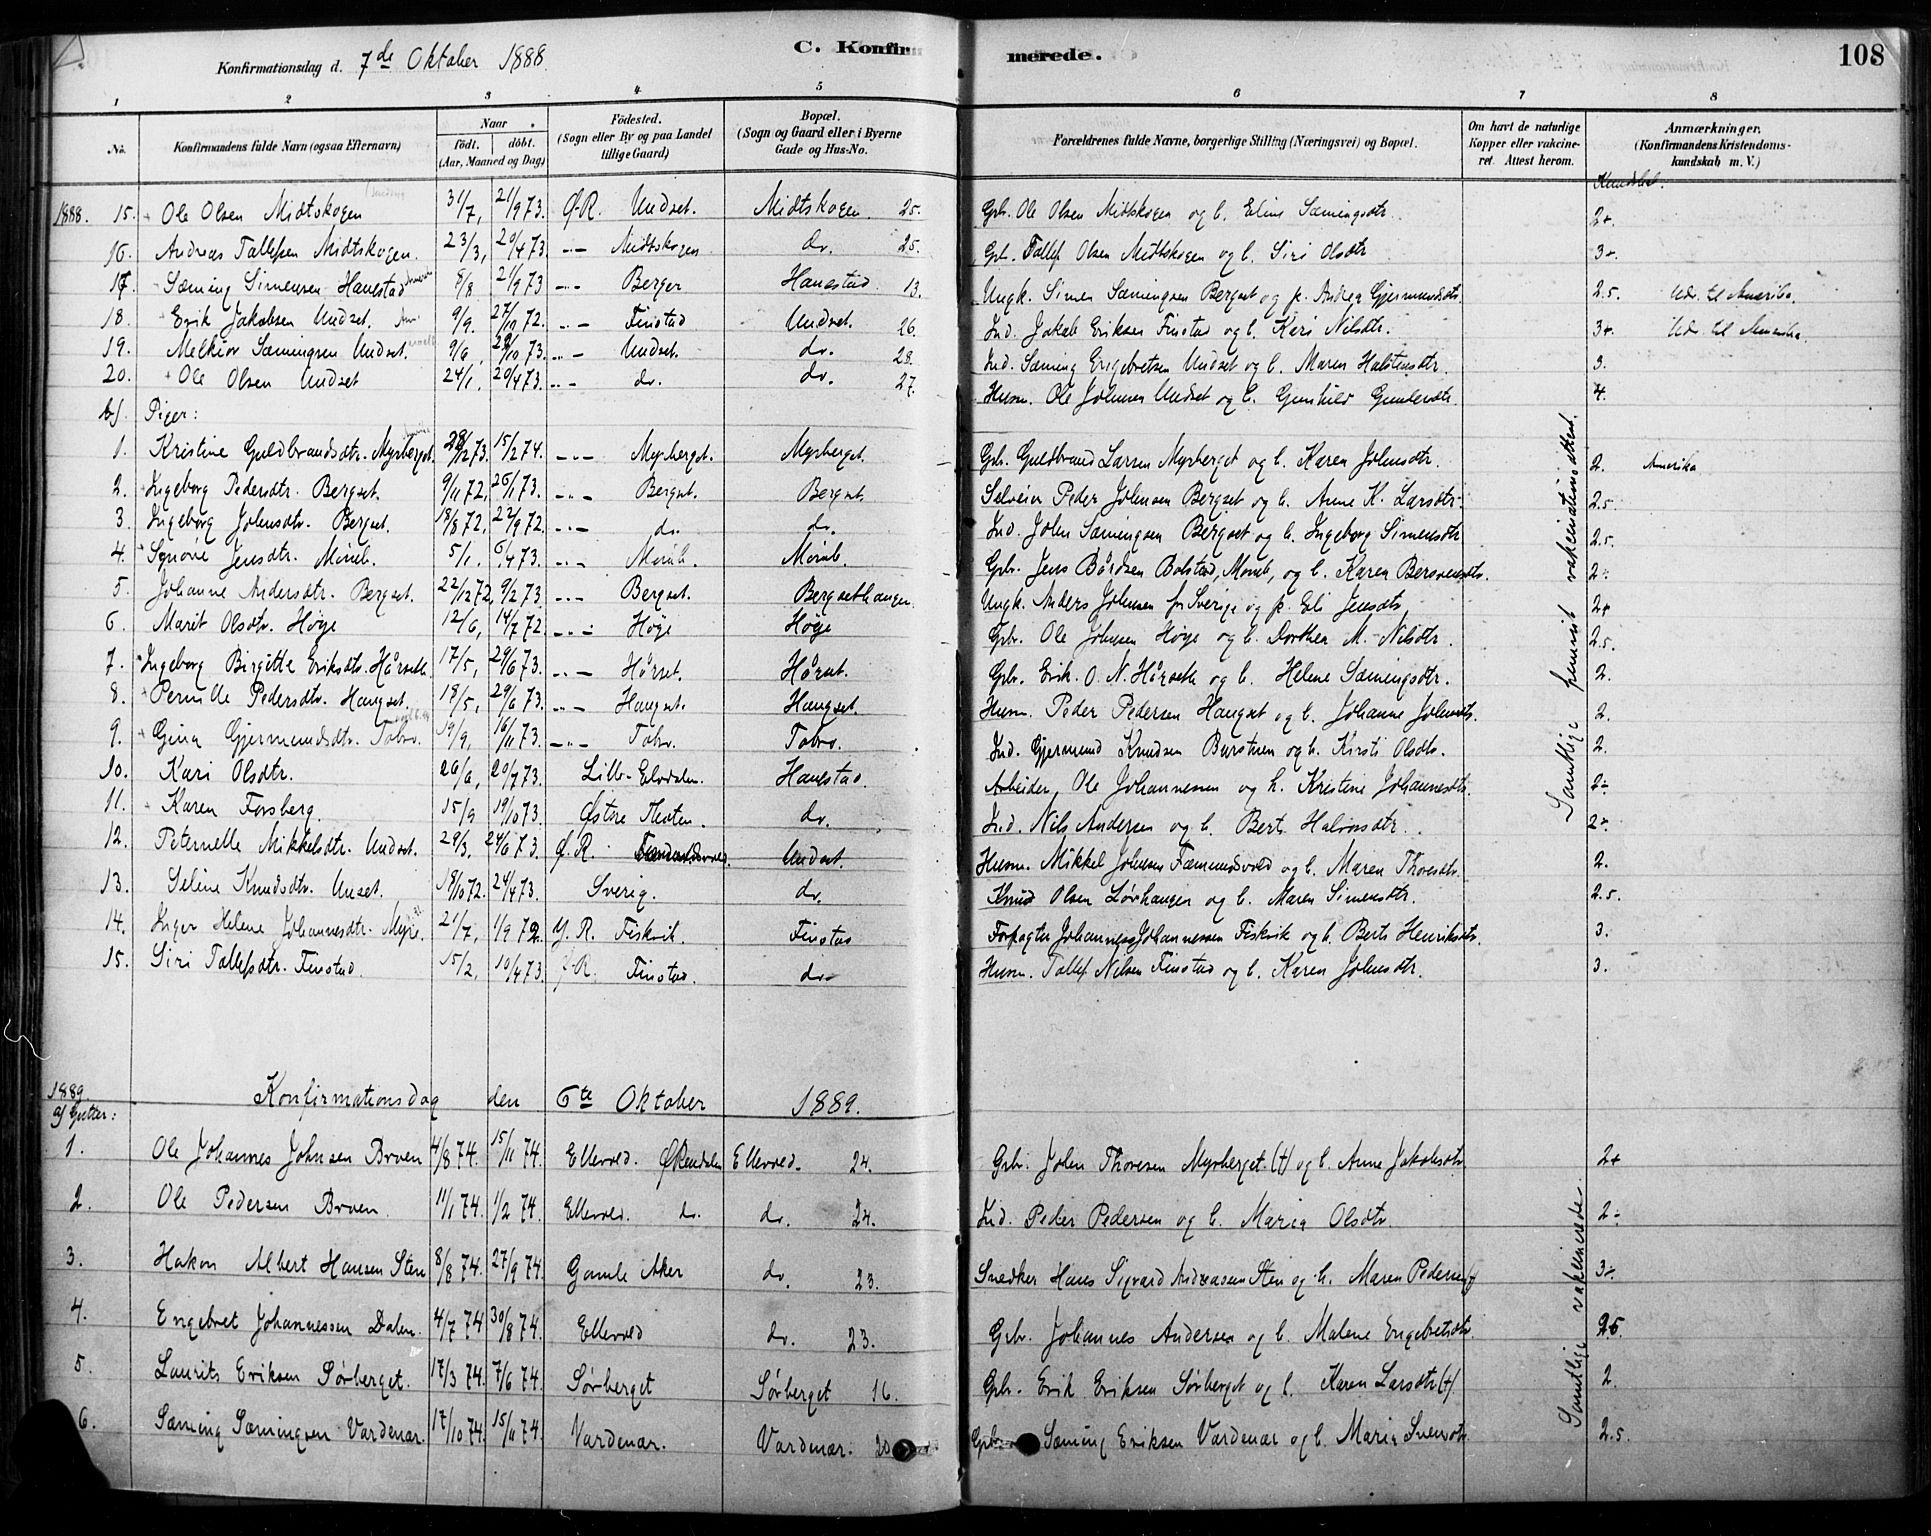 Konfirmationsdag d. 7de Oktober 1888.
C. Konfirmerede.
108
1 2 3 4 5 6 7 8
No. Konfirmandens fulde Navn (ogsaa Efternavn) Naar födt. döbt. (Aar, Maaned og Dag) Födested. (Sogn eller By og paa Landet tillige Gaard) Bopæl. (Sogn og Gaard eller i Byerne Gade og Hus-No. Forældrenes fulde Navne, borgerlige Stilling (Næringsvei) og Bopæl. Om havt de naturlige Kopper eller vakcineret. Attest herom. Anmærkninger. (Konfirmandens Kristendomskundskab m. V.)
1888. 15. Ole Olsen Midtskogen 31/7, 21/9 73. Ø.R. Undset. Midtskogen 25. Gbr. Ole Olsen Midtskogen og h. Eline Sæmingsdtr. 2+
16. Andreas Tallefsen Midtskogen. 23/3, 20/4 73. -"- Midtskogen do. 25. Gbr. Tallef Olsen Midtskogen og h. Siri Olsdtr 3+
17 Sæming Simensen Hanestad 8/8 21/9 73 -"- Berger Hanestad 13. Ungk. Simen Sæmingsen Bergset og p. Andrea Gjermundsdtr. 2.5. Udv. til Amerika.
18. Erik Jakobsen Undset. 9/9. 27/10 72. -"- Finstad Undset. 26. Ind. Jakob Eriksen Finstad og h. Kari Nilsdtr. 3+ Udv. til Amerika.
19. Melkior Sæmingsen Undset. 9/6 /10 73. -"- Undset. do. 28. Ind. Sæming Engebretsen Undset og h. Maren Halstensdtr. 3.
20. Ole Olsen Undset 24/1. 20/4 73. -"- do. do. 27. Husm. Ole Johnsen Undset og h. Gunhild Gundersdtr. 4.
b). Piger:
1. Kristine Guldbrandsdtr. Myrberget. 28/12 73. 15/2 74. -"- Myrberget. Myrberget. Gbr. Guldbrand Larsen Myrberget og h. Karen Johnsdtr. 2. Amerika
2. Ingeborg Pedersdtr. Bergset. 9/11 72, 26/1 73. -"- Bergset. Bergset. Selveier Peder Johnsen Bergset og h. Anne K. Larsdtr. 2.5.
3. Ingeborg Johnsdtr. Bergset. 18/8 72. 22/9 72. -"- do. do. Ind. John Sæmingsen Bergset og h. Ingeborg Simensdtr 2.5.
4. Synøve Jensdtr. Moreb. 5/1. 6/4 73. -"- Moreb. Moreb. Gbr. Jens Bårdsen Bolstad, Moreb, og h. Karen Bersvensdtr. 2-
5. Johanne Andersdtr. Bergset. 22/12 72, 9/2 73. -"- Bergset. Bergsethaugen. Ungk. Anders Johnsen fr. Sverige og p. Eli Jensdtr 2+
6. Marit Olsdtr. Høye 12/6, 14/7 72. -"- Høye Høye Gbr. Ole Johnsen Høye og h. Dorthea M. Nilsdtr. 2.5.
7. Ingeborg Birgitte Eriksdtr. Hårseth 17/5, 29/6 73. -"- Hårset. Hårset. Gbr. Erik O. N. Hårseth og h. Helene Sæmingsdtr. 2.
8. Pernille Pedersdtr. Haugset. 18/5, 29/6 73. -"- Haugset. Haugset. Husm. Peder Pedersen Haugset og h. Johanne Johnsdtr. 2.
9. Gina Gjermundsdtr. Tobro. 19/9, 16/11 73. -"- Tobro. Tobro. Ind. Gjermund Knudsen Burstuen og h. Kirsti Olsdtr. 2.
10. Kari Olsdtr. 26/6, 20/7 73. Lille-Elvdalen. Hanestad. Arbeider Ole Johannessen og h. Kristine Johannesdtr. 2-
11. Karen Forsberg. 15/9 19/10 73. Østre Thoten. do. Ind. Nils Andersen og h. Berte Halvorsdtr. 2+
12. Peternelle Mikkelsdtr. Undset. 29/3. 24/6 73. Ø.R. Fæmundsvold. Undset. Husm. Mikkel Johnsen Fæmundsvold og h. Maren Thoresdtr. 2.
13. Seline Knudsdtr. Unset. 18/10 72. 24/4 73. Sverig. do. Knud Olsen Løvhaugen og h. Maren Simensdtr. 2.5.
14. Inger Helene Johannesdtr. Myre. 21/7, 1/9 72. Y.R. Fiskvik. Finstad Forpagter Johannes Johannessen Fiskvik og h. Berte Henriksdtr. 3.
15. Siri Tallefsdtr. Finstad. 15/2, 10/4 73. Ø.R. Finstad. do. Husm. Tallef Nilsen Finstad og h. Karen Johnsdtr. 3.
Samtlige fremvist vakcinationsattest.
1889. Konfirmationsdag den 6te Oktober 1889.
a) Gutter:
1. Ole Johannes Johnsen Broen 4/8 74. 15/11 74. Ellevold. Ø Rendalen Ellevold. 24. Gbr. John Thoresen Myrberget (+) og h. Anne Jakobsdtr. 2+
2. Ole Pedersen Broen. 11/1 74. 1/2 74. Ellevold. do. do. 24. Ind. Peder Pedersen og h. Maria Olsdtr. 2-
3. Hakon Albert Hansen Sten 8/8 74. 27/9 74. Gamle Aker do. 23. Snedker Hans Sigvard Andreassen Sten og h. Maren Pedersen 3+
4. Engebret Johannessen Dalen. 4/7 74 30/8 74. Ellevold do. 23. Gbr. Johannes Andersen og h. Malene Engebretsdtr. 2.5.
5. Laurits Eriksen Sørberget. 17/3 74. 7/6 74. Sørberget Sørberget 16. Gbr. Erik Eriksen Sørberget og h. Karen Larsdtr (+) 2.
6. Sæming Sæmingsen Vardenær. 17/10 74. 15/11 74. Vardenær. Vardenær. 20 Gbr. Sæming Eriksen Vardenær og h. Maria Svensdtr 2.5.
Samtlige vakcinerede.